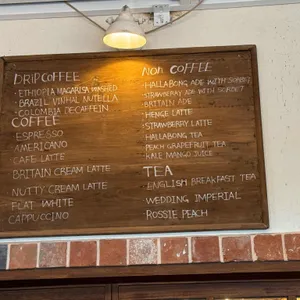 DRIPCOFFEE
· ETHIOPIA MAGARISA WASHED
· BRAZIL VINHAL NUTELLA
· COLOMBIA DECAFFEIN
COFFEE
ESPRESSO
AMERICANO
CAFE LATTE
BRITAIN CREAM LATTE
NUTTY CREAM LATTE
FLAT WHITE
CAPPUCCINO
NON COFFEE
· HALLABONG ADE WITH SORBET
· STRAWBERRY ADE WITH SORBET
· BRITAIN ADE
· HENGE LATTE
· STRAWBERRY LATTE
HALLABONG TEA
PEACH GRAPEFRUIT TEA
KALE MANGO JUICE
TEA
· ENGLISH BREAKFAST TEA
WEDDING IMPERIAL
ROSSIE PEACH